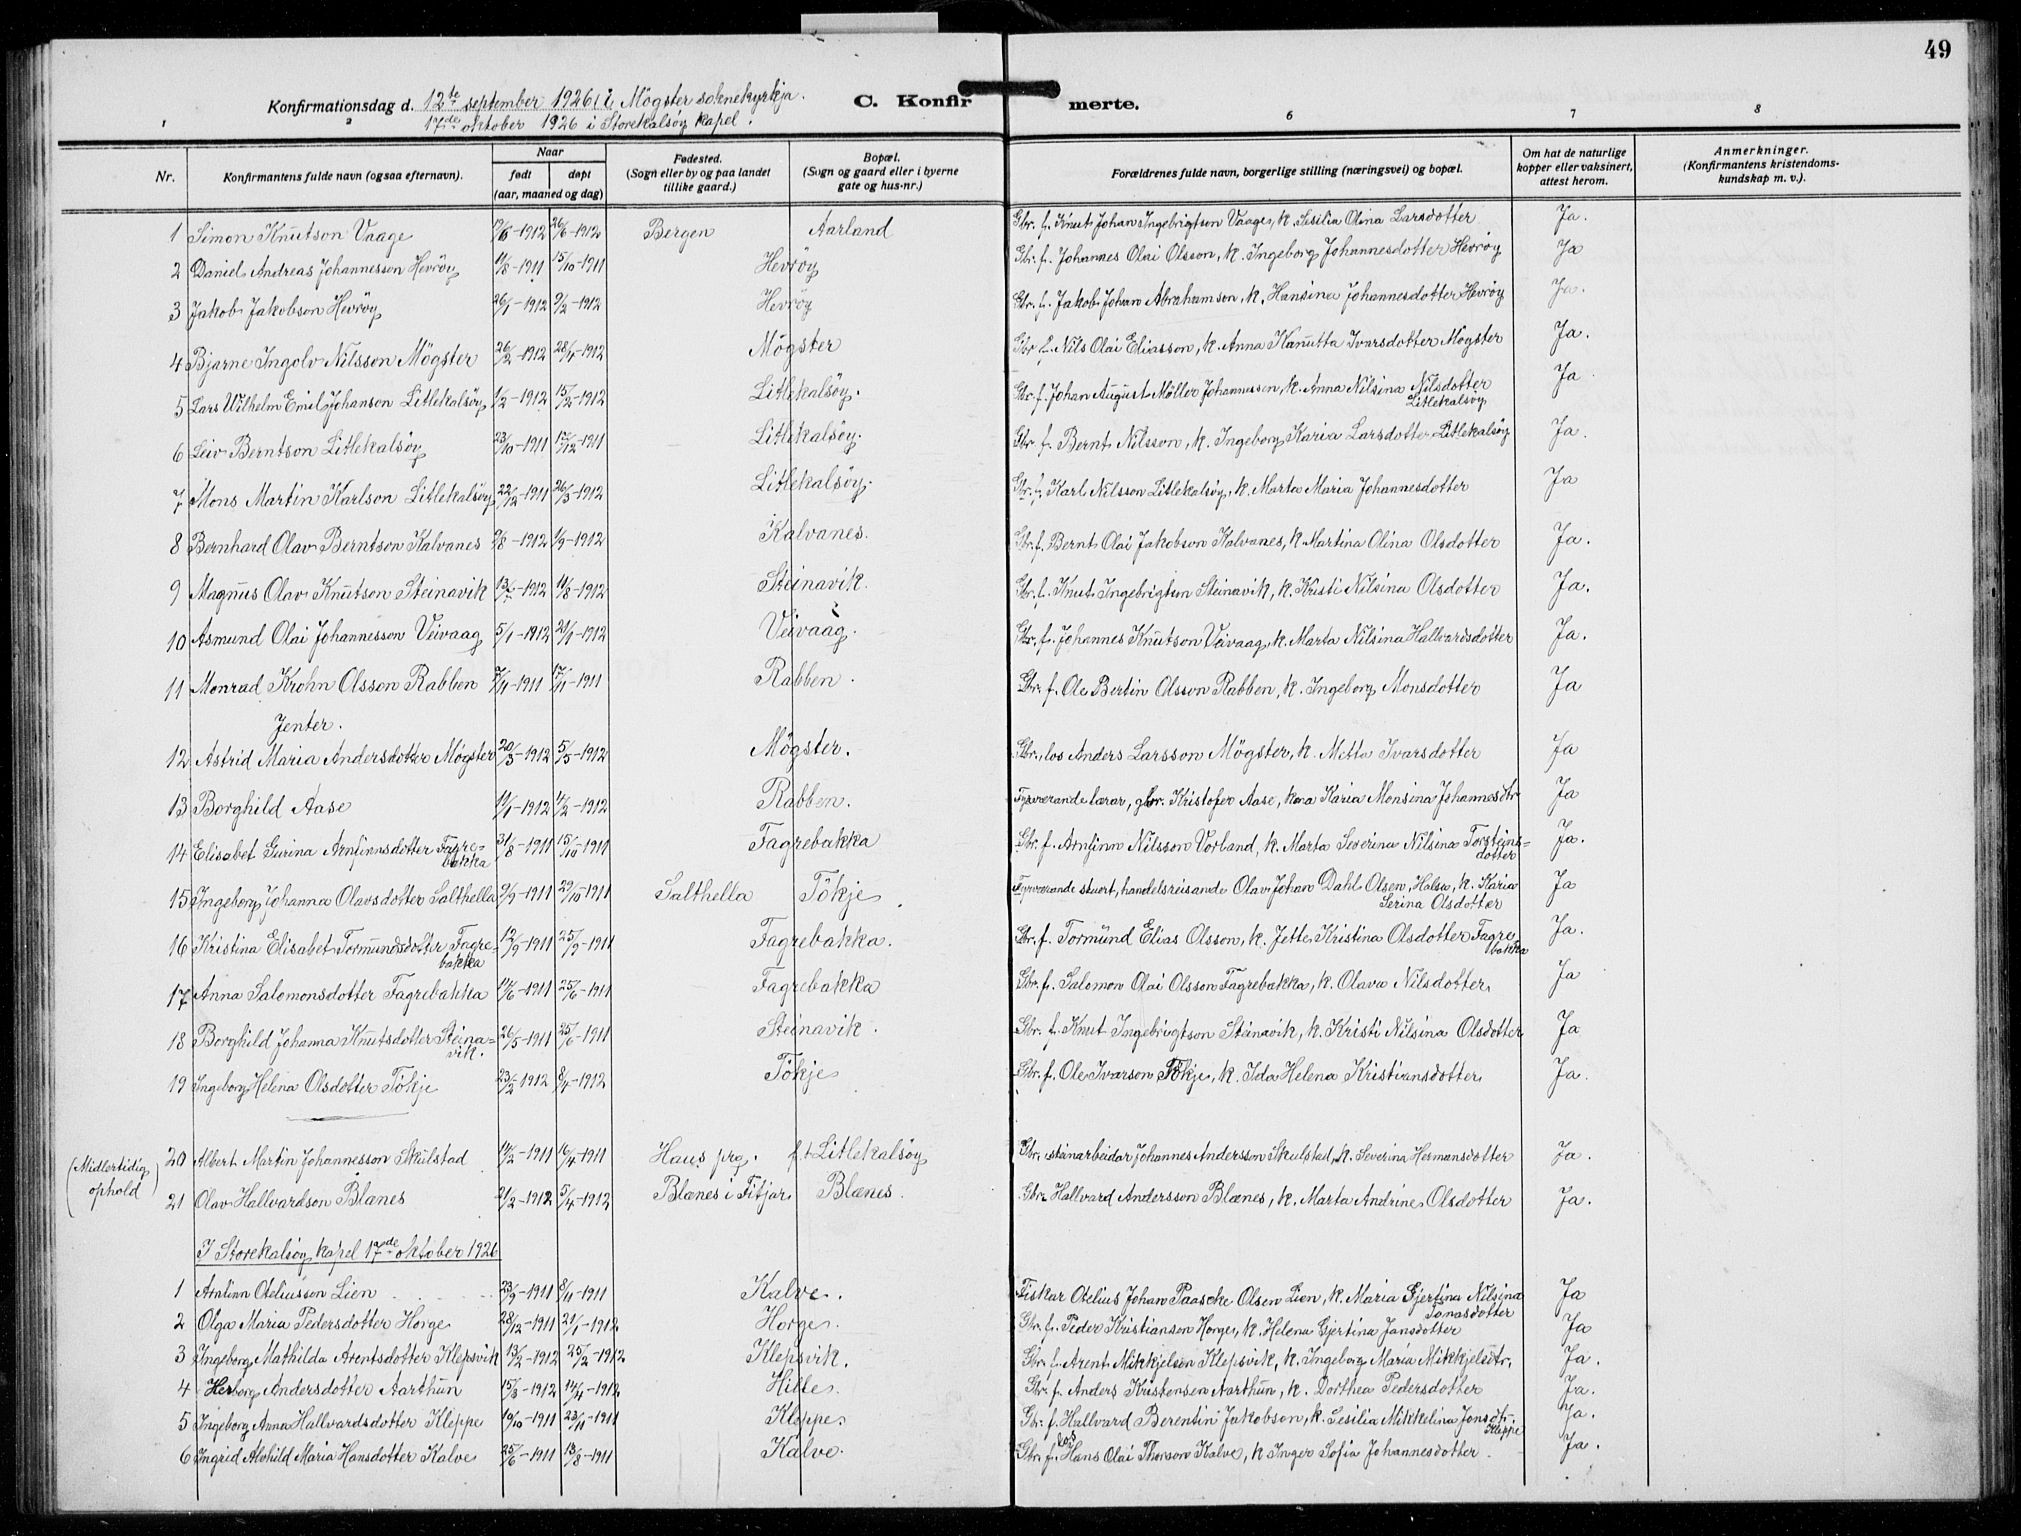 49
Konfirmationsdag d. 12te september 1926 i Møgster soknekyrkja.
17de oktober 1926 i Storekalsøy kapel.
C. Konfirmerte.
1 2 6 7 8
Nr. Konfirmantens fulde navn (ogsaa efternavn). Naar født døpt (aar, maaned og dag) Fødested. (Sogn eller by og paa landet tillike gaard.) Bopæl. (Sogn og gaard eller i byerne gate og hus-nr.) Forældrenes fulde navn, borgerlige stilling (næringsvei) og bopæl. Om hat de naturlige kopper eller vaksinert, attest herom. Anmerkninger. (Konfirmantens kristendoms-kundskap m. v.).
1 Simon Knutson Vaage 26/6-1912 Bergen Aarland Gbr. f. Knut Johan Ingebrigtson Vaage, k. Sesilia Olina Larsdotter Ja.
2 Daniel Andreas Johannesson Hevrøy 11/8-1911 15/10-1911 Hevrøy Gbr. f. Johannes Olai Olsson, k. Ingeborg Johannesdotter Hevrøy Ja
3 Jakob Jakobson Hevrøy 26/1-1912 9/2-1912 Hevrøy Gbr. f. Jakob Johan Abrahamson, k. Hansina Johannesdotter Hevrøy Ja.
4 Bjarne Ingolv Nilsson Møgster 26/2-1912 28/4-1912 Møgster Gbr. f. Nils Olai Eliasson, k. Anna Kanutta Ivarsdotter Møgster Ja.
5 Lars Wilhelm Emil Johanson Litlekalsøy 1/2-1912 15/2-1912 Litlekalsøy. Gbr. f. Johan August Møller Johannessen, k. Anna Nilsina Nilsdotter Litlekalsøy Ja
6 Leiv Berntson Litlekalsøy 23/10-1911 17/12-1911 Litlekalsøy. Gbr. f. Bernt Nilsson, k. Ingeborg Karia Larsdotter Litlekalsøy Ja.
7 Mons Martin Karlson Litlekalsøy 22/12-1911 26/3-1912 Litlekalsøy. Gbr. f. Karl Nilsson Litlekalsøy, k. Marta Maria Johannesdotter Ja
8 Bernhard Olav Berntson Kalvanes 1/9-1912 Kalvanes. Gbr. f. Bernt Olai Jakobson Kalvanes, k. Martina Olina Olsdotter Ja.
9 Magnus Olav Knutson Steinavik 13/7-1912 11/8-1912 Steinavik. Gbr. f. Knut Ingebrigtson Steinavik, k. Kristi Nilsina Olsdotter Ja.
10 Asmund Olai Johannesson Veivaag 5/1-1912 21/1-1912 Veivaag. Gbr. f. Johannes Knutson Veivaag, k. Marta Nilsina Hallvardsdotter Ja.
11 Monrad Krohn Olsson Rabben 7/11-1911 17/11-1911 Rabben. Gbr. f. Ole Bertin Olsson Rabben, k. Ingeborg Monsdotter Ja
Jenter.
12 Astrid Maria Andersdotter Møgster 20/3-1912 5/5-1912 Møgster. Gbr., los Anders Larsson Møgster, k. Metta Ivarsdotter Ja
13 Borghild Aase 11/1-1912 11/2-1912 Rabben. Fyrverande lærar, gbr. Kristofer Aase, kona Karia Monsina Johannesdtr Ja
14 Elisabet Gurina Arnfinnsdotter Fagrebakka 31/8-1911 15/10-1911 Fagrebakka Gbr. f. Arnfinn Nilsson Vorland, k. Marta Severina Nilsina Torsteinsdotter Ja.
15 Ingeborg Johanna Olavsdotter Salthella 9/9-1911 29/10-1911 Salthella Tøkje Fyrverande stuert, handelsreisande Olav Johan Dahl Olsen, Halsa, k. Karia Serina Olsdotter Ja
16 Kristina Elisabet Tormundsdotter Fagrebakka 12/9-1911 25/9-1911 Fagrebakka. Gbr. f. Tormund Elias Olsson, k. Jette Kristina Olsdotter Fagrebakka Ja.
17 Anna Salomonsdotter Fagrebakka 14/6-1911 25/6-1911 Fagrebakka Gbr. f. Salomon Olai Olsson Fagrebakka, k. Olava Nilsdotter Ja
18 Borghild Johanna Knutsdotter Steinavik. 26/5-1911 25/6-1911 Steinavik. Gbr. f. Knut Ingebrigtson Steinavik, k. Kristi Nilsina Olsdotter Ja
19 Ingeborg Helena Olsdotter Tøkje 23/2-1912 8/4-1912 Tøkje Gbr. f. Ole Ivarson Tøkje, k. Ida Helena Kristiansdotter Ja.
(Midlertidig ophold)
20 Albert Martin Johannesson Skulstad 14/2-1911 16/4-1911 Haus prg. f. t Litlekalsøy Gbr. steinarbeidar Johannes Andersson Skulstad, k. Severina Hermansdotter Ja.
21 Olav Hallvardson Blænes 21/2-1912 5/4-1912 Blænes i Fitjar Blænes. Gbr. Hallvard Andersson Blænes, k. Marta Andrine Olsdotter Ja.
I Storekalsøy kapel 17de oktober 1926
1 Oteliusson Lien 23/9-1911 8/11-1911 Kalve. Fiskar Otelius Johan Paaske Olsen Lien, k. Maria Gjertina Nilsina Jonasdotter Ja
2 Olga Maria Pedersdotter Horge 28/12-1911 21/1-1912 Horge. Gbr. f. Peder Kristianson Horge, k. Helena Gjertina Jansdotter Ja
3 Ingeborg Mathilda Arentsdotter Klepsvik 13/2-1912 25/2-1912 Klepsvik. Gbr. f. Arent Mikkjelson Klepsvik, k. Ingeborg Maria Mikkjelsdtr. Ja.
4 Herborg Andersdotter Aarthun 15/3-1912 14/4-1912 Hille. Gbr. f. Anders Kristensen Aarthun, k. Dorthea Pedersdotter Ja.
5 Ingeborg Anna Hallvardsdotter Kleppe 19/10-1911 23/11-1911 Kleppe. Gbr. f. Hallvard Berentin Jakobson, k. Sesilia Mikkelina Jonsdtr. Kleppe Ja.
6 Ingrid Alvhild Maria Hansdotter Kalve 25/6-1911 13/8-1911 Kalve. Gbr. f. los Hans Olai Thorson Kalve, k Inger Sofia Johannesdotter Ja.